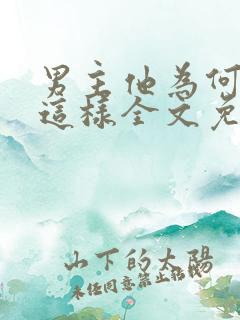 男主他為何
這樣全文免
山下的太陽
未經同意禁止轉載